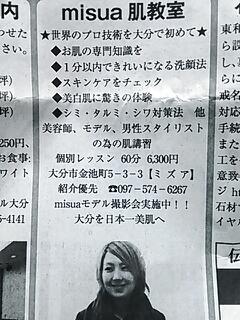 misua 肌教室
★世界のプロ技術を大分で初めて★
◆お肌の専門知識を
◆1分以内できれいになる洗顔法
◆スキンケアをチェック
◆美白肌に驚きの体験
◆シミ・タルミ・シワ対策法 他
美容師、モデル、男性スタイリスト
の為の肌講習
個別レッスン 60分 6,300円
大分市金池町5-3-3【ミズア】
紹介優先 ☎097-574-6267
misuaモデル撮影会実施中!!
大分を日本一美肌へ
内
わせた
さい。
坪)
坪)
250円、
お食事:
ワイト
ル大分
5-4141